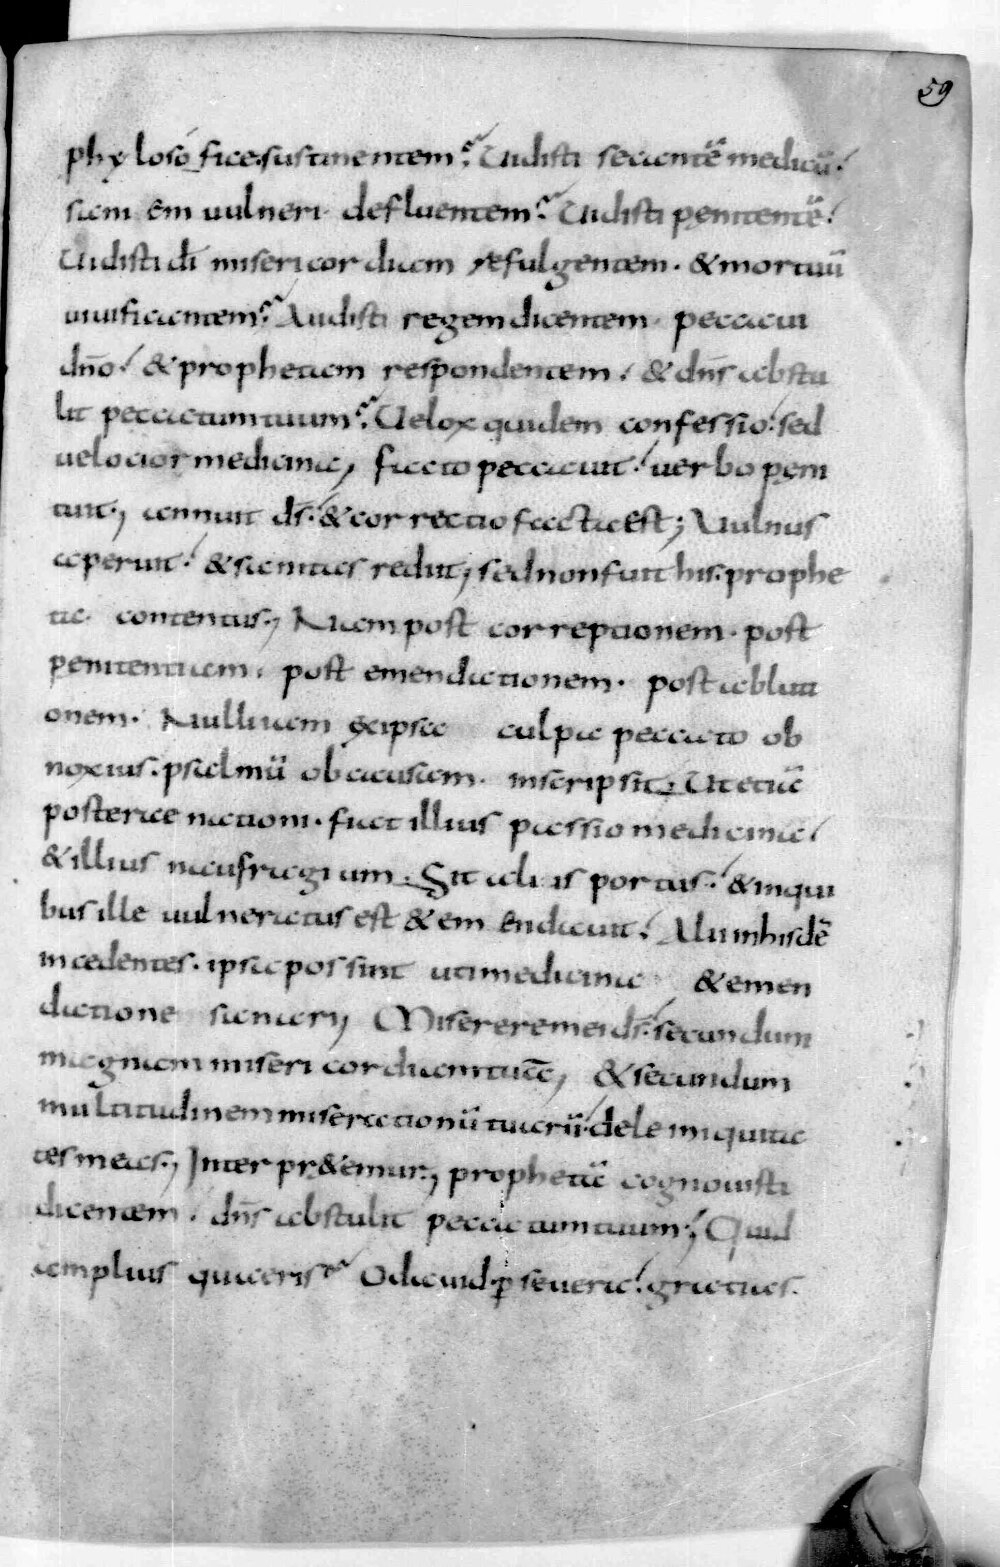 59
phylosofice. sustinentem? Uidisti secantē medicū.
saniem uulneri defluentem? Uidisti pęnitentē.
Uidisti dī misericordiam refulgentem. & mortuū
uiuificantem? Audisti regem dicentem peccaui
dño. & prophetam respondentem. & dñs abstu
lit peccatum tuum? Uelox quidem confessio. sed
uelocior medicina; facto peccauit. uerbo pęni
tuit; annuit ds̄. & correctio facta est; Uulnus
aperuit. & sanitas rediit; sed non fuit his. prophe
ta contentus; Nam post correptionem. post
pęnitentiam. post emendationem. post abluti
onem. Nulli iam ex ipsa culpa peccato ob
noxius. psalmū ob causam inscripsit. Ut etiā
posterae nationi. fiat illius passio medicina.
& illius naufragium. Sit aliis portus. & in qui
bus ille uulneratus est & emendauit. Alii in his dē
incedentes. ipsa possint uti medicina & emen
datione sanari; Miserere mei ds̄. secundum
magnam misericordiam tuā; & secundum
multitudinem miserationū tuarū. dele iniquita
tes meas; Interpr&emur; prophetā cognouisti
dicentem. dñs abstulit peccatum tuum; Quid
amplius quaeris? O dauid. p̱seuera. gratias.